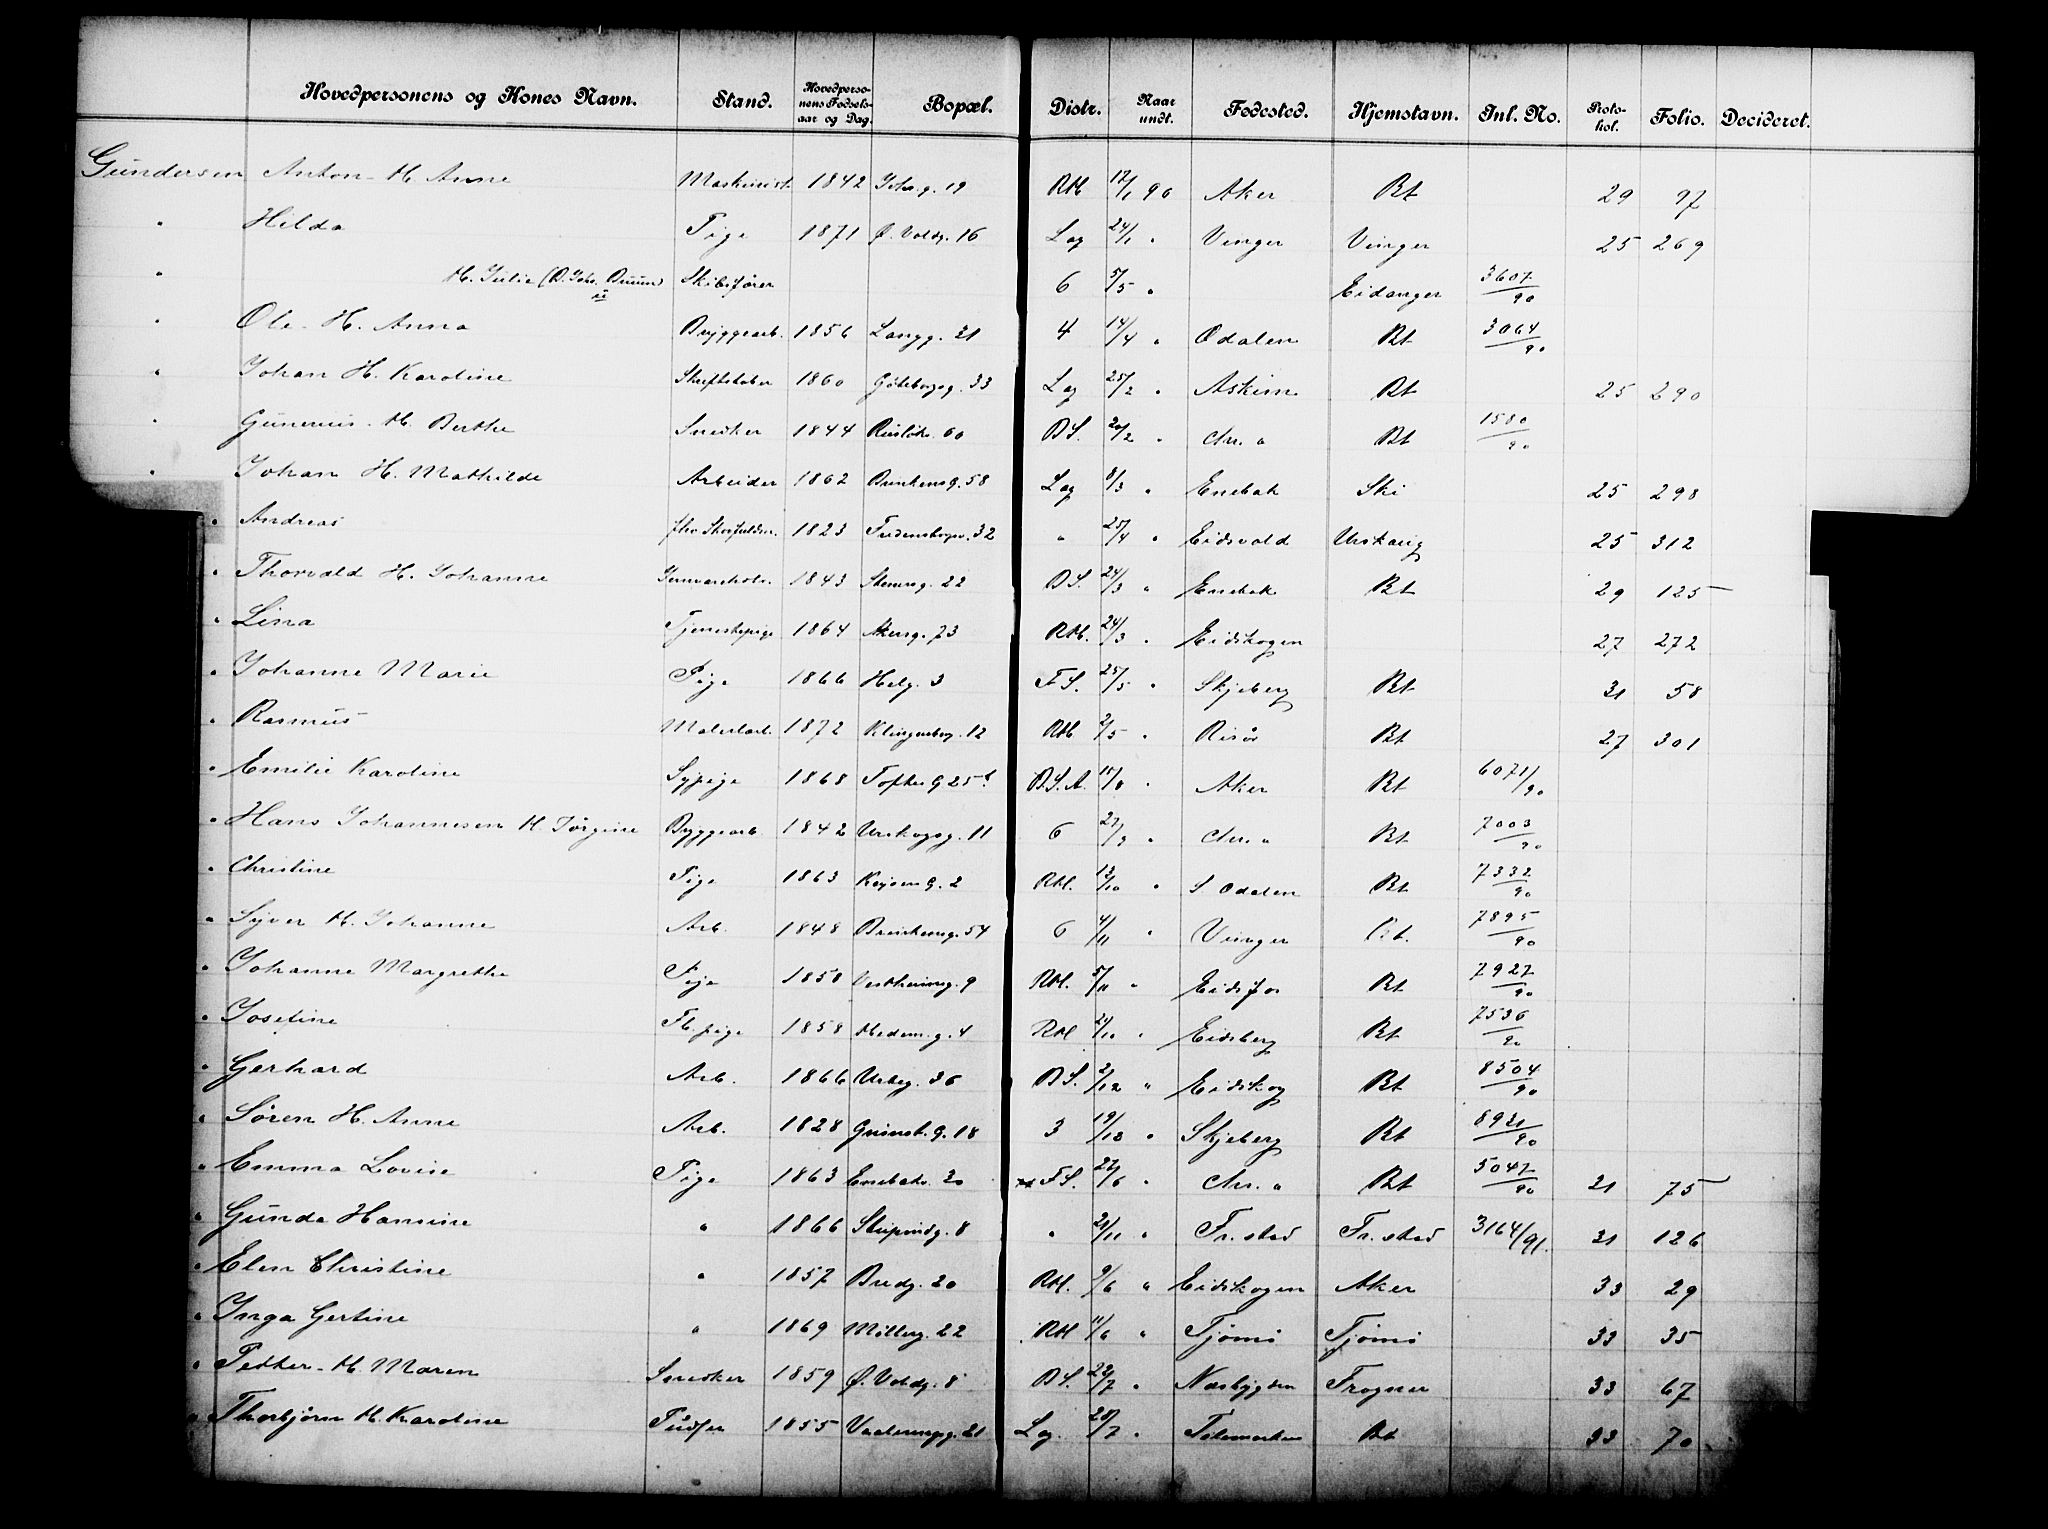 Hovedpersonens og Kones Navn. Stand. Hovedpersonens Fødselsaar og Dag. Bopæl. Distr. Naar undt. Fødested. Hjemstavn. Inl. No. Protokol. Folio. Decideret.
Gundersen Anton - H. Anne Maskinist 1842 Johs g. 19 RH 17/1 90 Aker Bt 29 97
" Hilda Pige 1871 Ø. Voldg. 16 Lag 24/1 " Vinger Vinger 25 269
" H. Julie Skibsfører 6 5/5 " Eidanger 3607/90
" Ole - H. Anna Bryggearb. 1856 Langg. 21 4 14/4 " Odalen Bt 3064/90
" Johan H. Karoline 1860 Göteborgg. 33 Lag 25/2 " Askim Bt 25 290
" Gunerius - H. Berthe Snedker 1844 60 B.S. 20/2 " Chr. a Bt 1580/90
" Johan H. Mathilde Arbeider 1862 58 Lag 8/3 " Enebak Ski 25 298
" Andreas 1823 32 " 25/4 " Eidsvold Urskoug 25 312
" Thorvald H. Johanne 1843 Stensg. 22 B.S. 24/3 " Enebak Bt 29 125
" Lina Tjenestepige 1864 Akersg. 73 RH. 24/3 " Eidskogen 27 272
" Johanne Marie Pige 1866 Helg. 3 F.S. 25/5 " Skjeberg Bt 31 58
" Rasmus 1872 Klingenberg. 12 RH 2/5 " Risør Bt 27 301
" Emilie Karoline Sypige 1868 Toftes G 25 B.S.A. 15/8 " Aker Bt 6071/90
" Hans Johannesen H. Jørgine Byggearb. 1842 Urskogsg. 11 6 27/9 " Chr. a Bt 7003/90
" Christine Pige 1863 Keysers G. 2 RH. 13/10 " S Odalen Bt 7332/90
" Syver H. Johanne Arb. 1848 54 6 4/11 " Vinger Bt. 7895/90
" Johanne Margrethe Pige 1850 Vestheimsg. 9 RH. 5/11 " Eidsfos Bt 7927/90
" Josefine 1858 g. 4 RH 21/10 " Eidsberg Bt 7536/90
" Gerhard Arb. 1866 Urteg. 36 B.S. 2/12 " Eidskog Bt 8504/90
" Søren H. Anne Arb. 1828 Grimst. G. 18 3 19/12 " Skjeberg Bt 8921/90
" Emma Lovise Pige 1863 Enebakv. 20 F.S. 27/6 " Chr. a Bt 5047/90 21 75
" Gunda Hansine " 1866 8 " 21/11 " Fr. stad Fr. stad 3164/91. 31 126
" Elen Christine " 1857 Bredg. 20 RH. 9/6 " Eidskogen Aker 33 29
" Inga Gertine " 1869 Møllerg. 22 RH 11/6 " Tjømø Tjømø 33 35
" Petter - H. Maren Snedker 1859 Ø. Voldg. 8 B.S. 22/7 " Næsbygden Frogner 33 67
" Thorbjørn H. Karoline Pudser 1855 21 Lag. 28/7 " Telemarken Bt 33 70